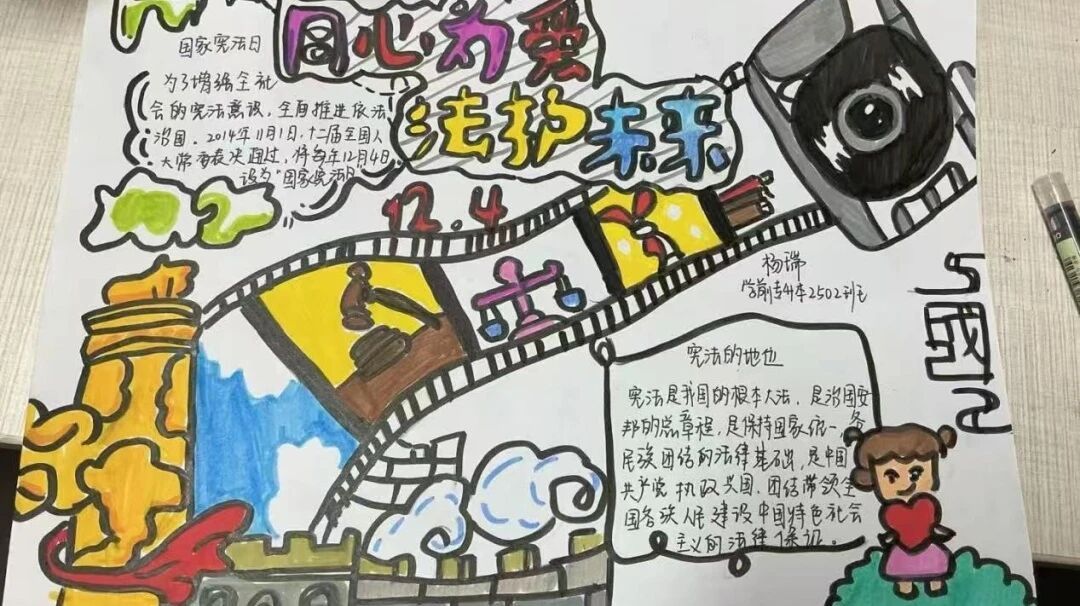 同心为爱
法护未来
国家宪法日
为了增强全社
会的宪法意识，全面推进依法
治国。2014年11月1日，十二届全国人
大常委表决通过，将每年12月4日
设为“国家宪法日
12.4
杨瑞
学前专升本2502班
宪法的地也
宪法是我国的根本大法，是治国安
邦的总章程，是保持国家统一，各
民族团结的法律基础，是中国
共产党执政兴国，团结带领全
国各族人民建设中国特色社会
主义的法律保证。
國